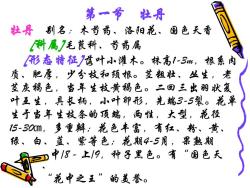 第一节  牡丹
牡丹  别名:木芍药、洛阳花、国色天香
[科属]毛茛科、芍药属
[形态特征]落叶小灌木。株高1-3m,根系肉
质、肥厚,少分枝和须根。茎粗壮,丛生,老
茎灰褐色,当年生枝黄褐色。二回三出羽状复
叶互生,具长柄,小叶卵形,先端3-5裂。花单
生于当年生枝条的顶端,两性,大型,花径
15-30cm,多重瓣;花色丰富,有红、粉、黄、
绿、白、蓝、紫等色;花期4-5月,果熟期
中/8-上/9,种芽黑色。有“国色天
“花中之王”的美誉。